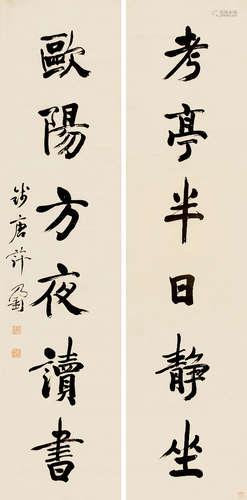 考亭半日静坐
歐陽方夜讀書
錢唐許乃